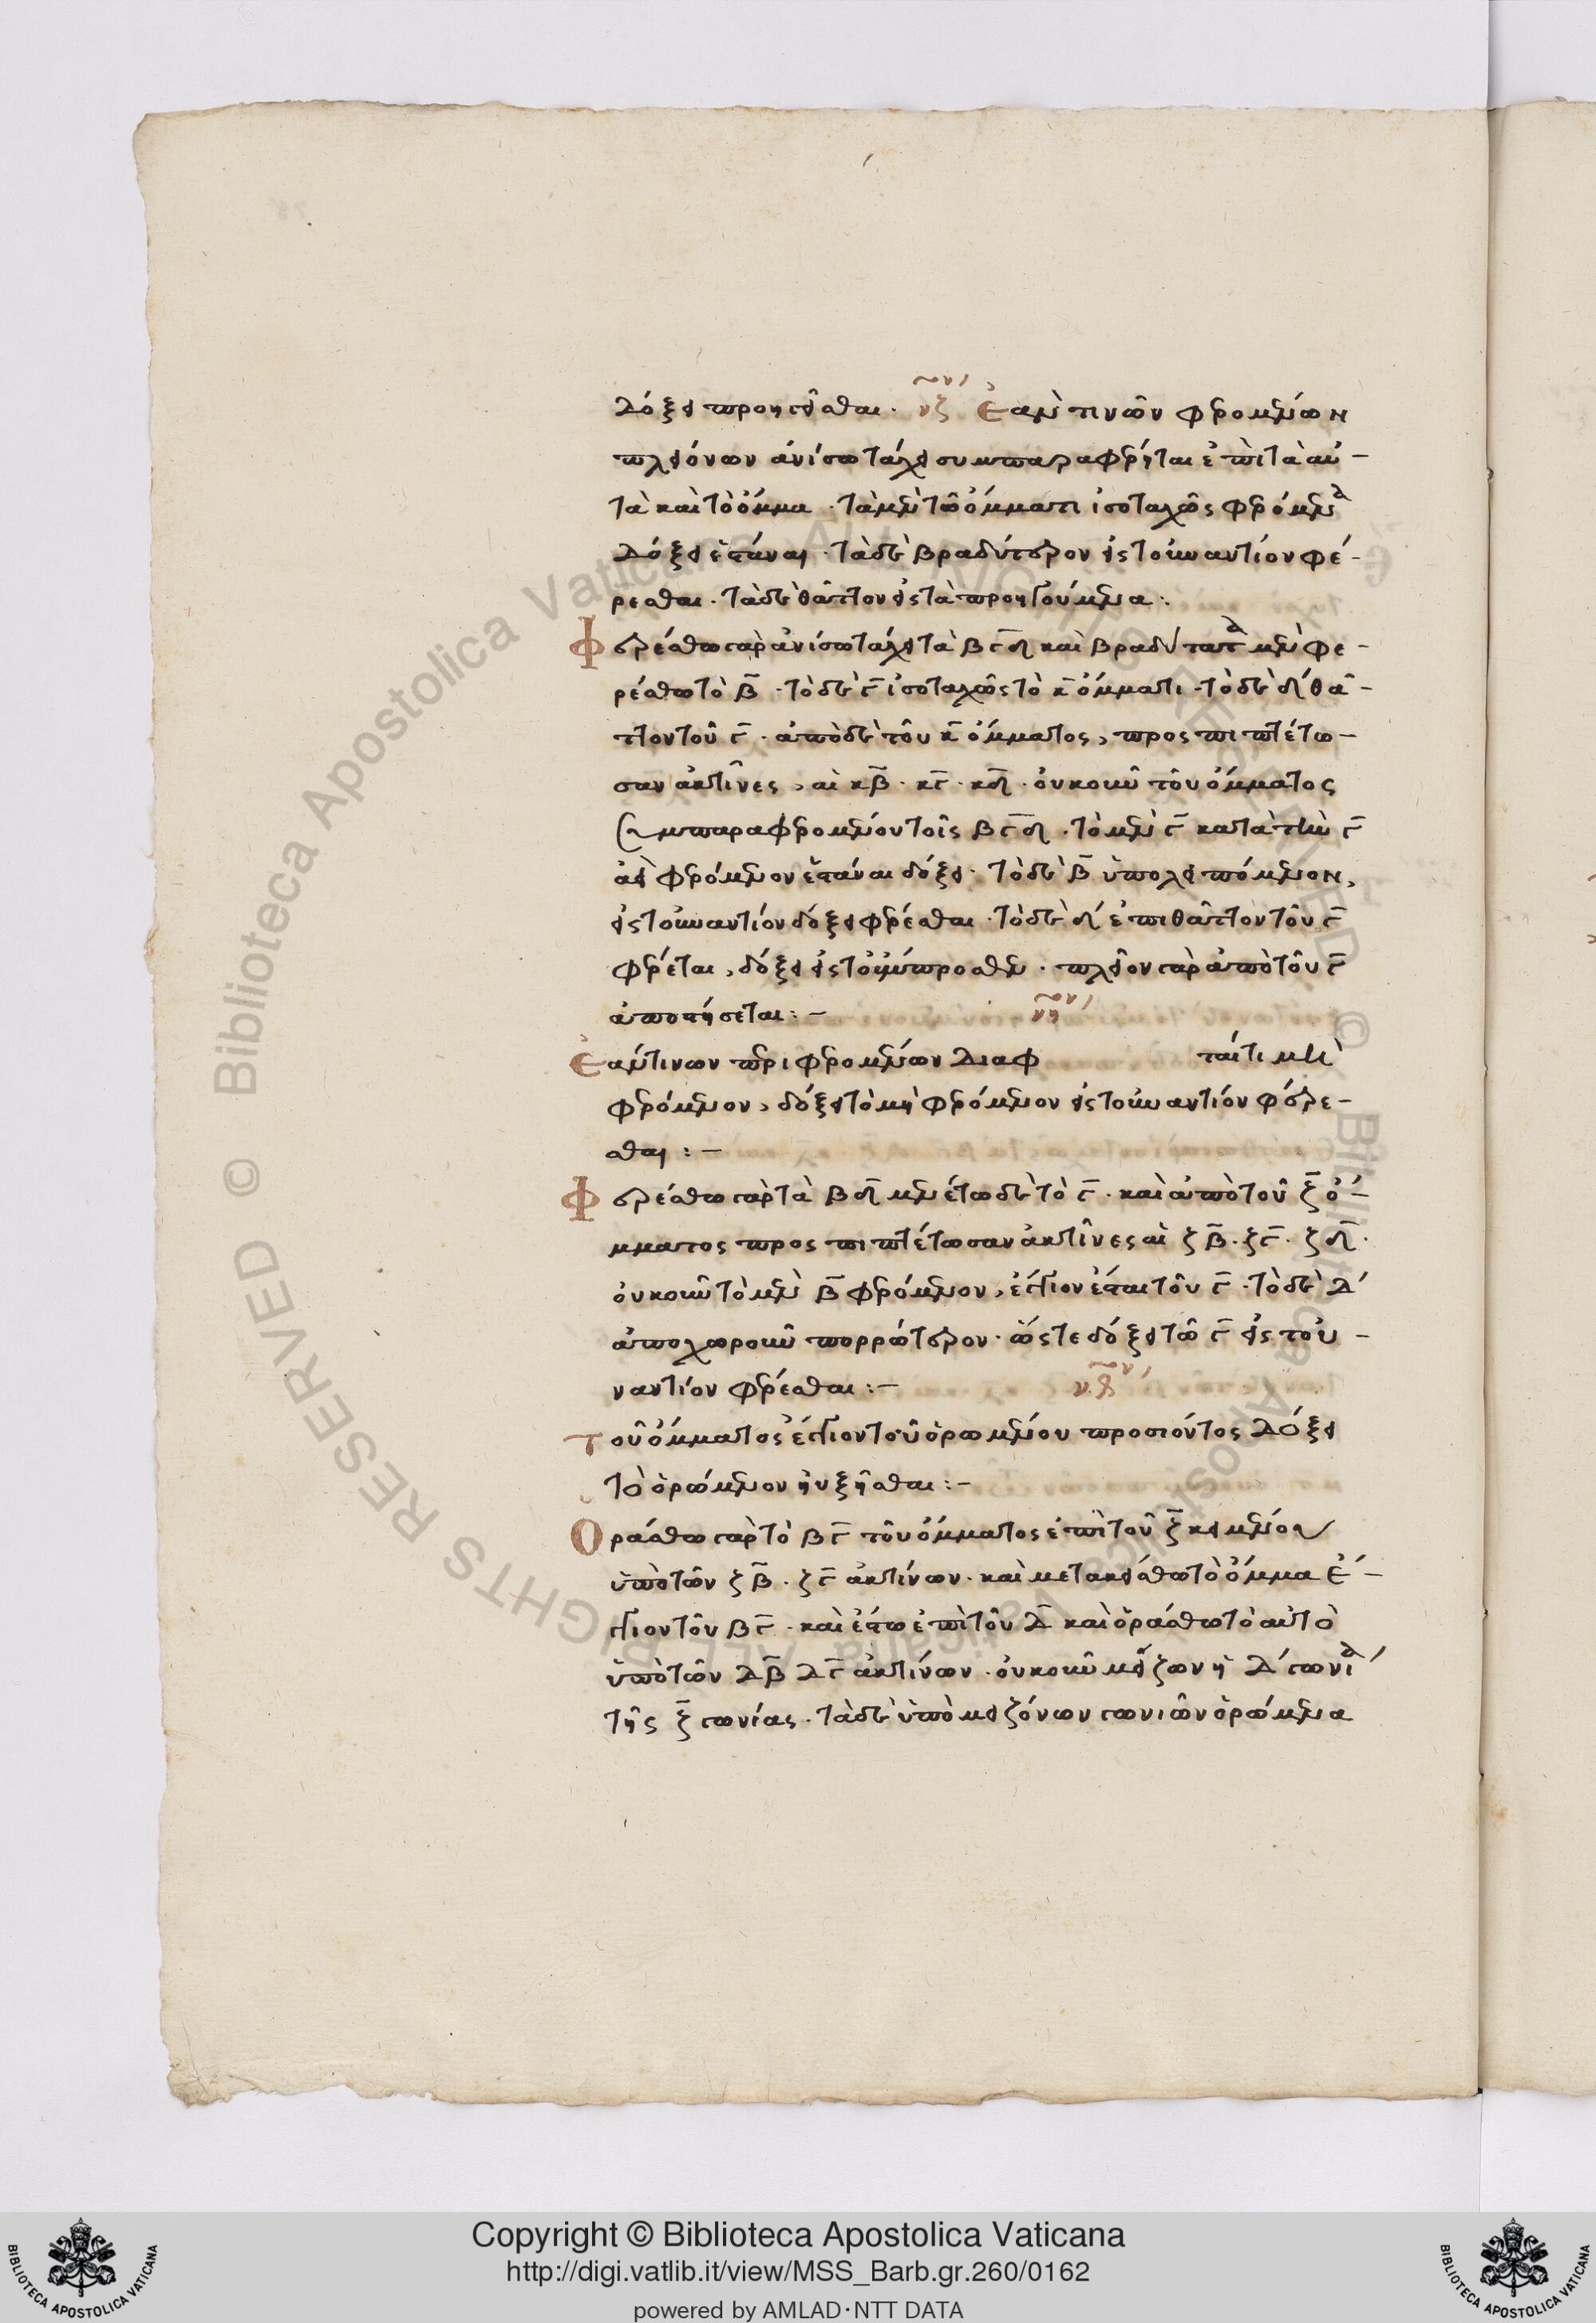 δόξει προηγεῖσθαι. νζʹ Ἐὰν τινῶν φερομένων
πλειόνων ἀνίσω τάχει συμπαραφέρηται ἐπὶ τὰ αὐ-
τὰ καὶ τὸ ὄμμα. τὰ μὲν τῶ ὄμματι ἰσοταχῶς φερόμενα
δόξει ἑστάναι. τὰ δὲ βραδύτερον εἰς τοὐναντίον φέ-
ρεσθαι. τὰ δὲ θᾶττον εἰς τὰ προηγούμενα:
Φερέσθω γὰρ ἀνίσω τάχει τὰ βγδ καὶ βραδύτατα μὲν φε-
ρέσθω τὸ β. τὸ δὲ γ ἰσοταχῶς τὸ κ ὄμματι. τὸ δὲ δ θᾶ-
ττον τοῦ γ. ἀπὸ δὲ τοῦ κ ὄμματος, προς πιπτέτω-
σαν ἀκτῖνες, αἱ κβ. κγ. κδ. οὐκοῦν τοῦ ὄμματος
συμπαραφερομένου τοῖς βγδ. τὸ μὲν γ κατὰ τὴν γ
ἀεὶ φερόμενον ἑστάναι δόξει. τὸ δὲ β ὑπολειπόμενον,
εἰς τοὐναντίον δόξει φέρεσθαι. τὸ δὲ δ ἐπι θᾶττον τοῦ γ
φέρεται, δόξει εἰς τοὔμπροσθεν. πλεῖον γὰρ ἀπὸ τοῦ γ
ἀποστήσεται:- νηʹ
Ἐάν τινων περιφερομένων διαφ ταί τι μὴ
φερόμενον, δόξει τὸ μὴ φερόμενον εἰς τοὐναντίον φέρε-
σθαι:-
Φερέσθω γὰρ τὰ βδ μενέτω δὲ τὸ γ. καὶ ἀπὸ τοῦ ζ ὄ-
μματος προς πιπτέτωσαν ἀκτῖνες αἱ ζβ. ζγ. ζδ.
οὐκοῦν τὸ μὲν β φερόμενον, ἔγγιον ἔσται τοῦ γ. τὸ δὲ δ
ἀποχωροῦν πορρώτερον. ὥστε δόξει τῶ γ εἰς τοὐ-
ναντίον φέρεσθαι:- νθʹ
Τοῦ ὄμματος ἔγγιον τοῦ ὁρωμένου προσιόντος δόξει
τὸ ὁρώμενον ηὐξῆσθαι:-
Ὁράσθω γὰρ τὸ βγ τοῦ ὄμματος ἐπὶ τοῦ ζ κειμένου
ὑπὸ τῶν ζβ. ζγ ἀκτίνων. καὶ μετακείσθω τὸ ὄμμα ἔ-
γγιον τοῦ βγ. καὶ ἔστω ἐπὶ τοῦ δ καὶ ὁράσθω τὸ αὐτὸ
ὑπὸ τῶν δβ δγ ἀκτίνων. οὐκοῦν μείζων ἡ δ γωνία
τῆς ζ γωνίας. τὰ δὲ ὑπὸ μειζόνων γωνιῶν ὁρώμενα
Copyright © Biblioteca Apostolica Vaticana
http://digi.vatlib.it/view/MSS_Barb.gr.260/0162
powered by AMLAD·NTT DATA